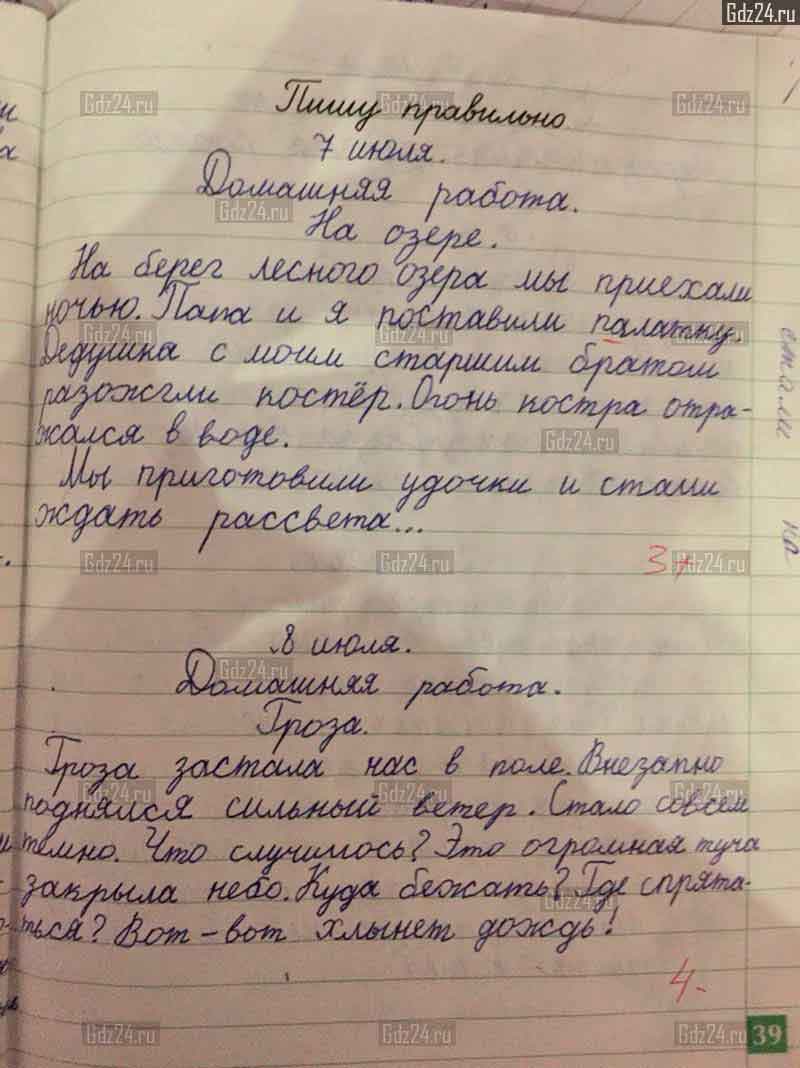 Gdz24.ru
Пишу правильно
7 июля.
Домашняя работа.
На озере.
На берег лесного озера мы приехали
ночью. Папа и я поставили палатку.
Дедушка с моим старшим братом
разожгли костёр. Огонь костра отра-
жался в воде.
Мы приготовили удочки и стали
ждать рассвета...
3+
8 июля.
Домашняя работа.
Гроза.
Гроза застала нас в поле. Внезапно
поднялся сильный ветер. Стало совсем
темно. Что случилось? Это огромная туча
закрыла небо. Куда бежать? Где спрята-
ться? Вот-вот хлынет дождь!
4-
39
стали на